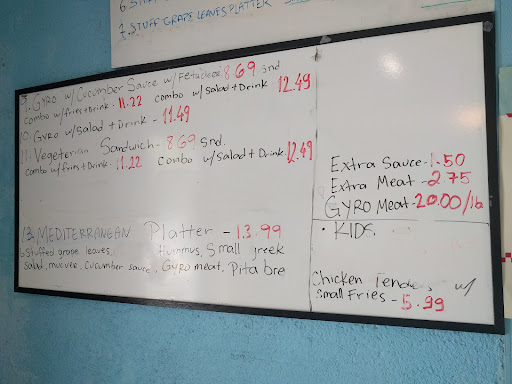 7. STUFF GRAPE LEAVES PLATTER
9. GYRO w/ Cucumber Sauce w/ Feta cheese 8.69 snd
combo w/fries+Drink. 11.22 combo w/Salad+Drink 12.49
10. Gyro w/Salad + Drink - 11.49
11. Vegeterian Sandwich - 8.69 Snd.
combo w/fries+Drink. 11.22 combo w/Salad+Drink. 12.49
13. MEDITERRANEAN Platter - 13.99
6 stuffed grape leaves, Hummus, Small greek
salad, Cucumber sauce, Gyro meat, Pita bre
Extra Sauce - 1.50
Extra Meat - 2.75
GYRO Meat - 20.00/lb
• KIDS.
Chicken Tende s w/
Small Fries - 5.99